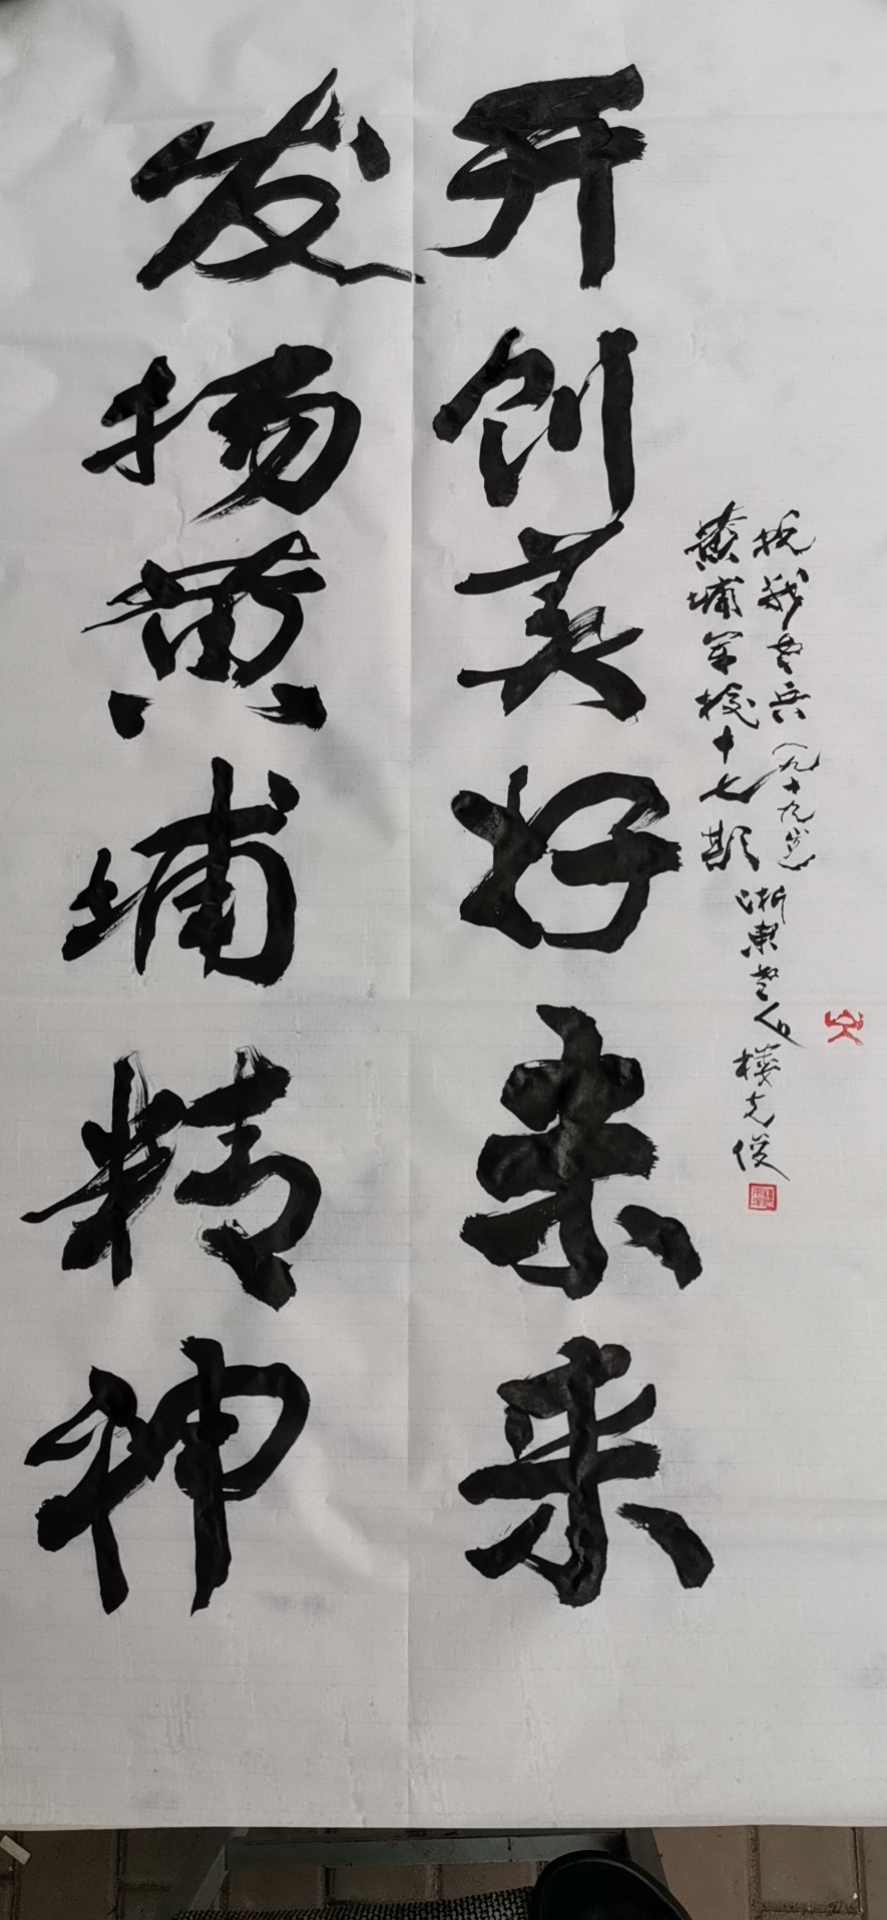 发扬黄埔精神
开创美好未来
黄埔军校十七期
抗战老兵（九十九岁）
浙東老人 樓克俊